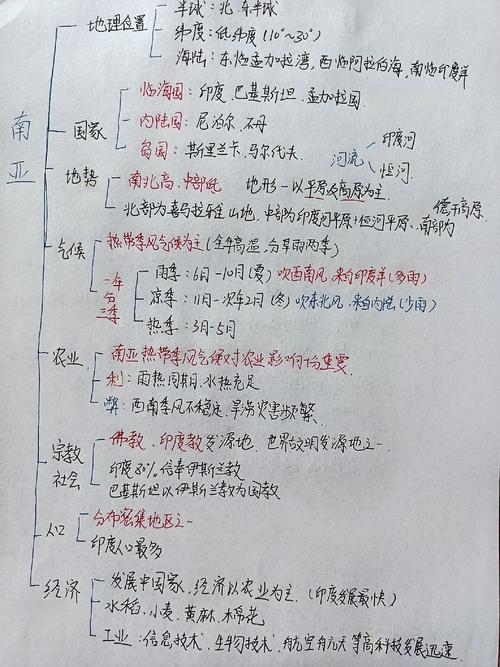 南亚
地理位置
半球：北、东半球
纬度：低纬度（10°~30°）
海陆：东临孟加拉湾，西临阿拉伯海，南临印度洋
国家
临海国：印度、巴基斯坦、孟加拉国
内陆国：尼泊尔、不丹
岛国：斯里兰卡、马尔代夫
河流
印度河
恒河
地势
南北高，中部低
地形—以平原及高原为主
北部为喜马拉雅山地，中部为印度河平原、恒河平原、南部为
德干高原
气候
热带季风气候为主（全年高温，分旱雨两季）
一年分三季
雨季：6月-10月（夏）吹西南风，来自印度洋（多雨）
凉季：11月-次年2月（冬）吹东北风，来自内陆（少雨）
热季：3月-5月
农业
南亚热带季风气候对农业影响十份重要
利：雨热同期，水热充足
弊：西南季风不稳定、旱涝灾害频繁
宗教社会
佛教、印度教发源地、世界古文明发源地之一
印度80%信奉伊斯兰教
巴基斯坦以伊斯兰教为国教
人口
分布密集地区之一
印度人口最多
经济
发展中国家，经济以农业为主（印度发展最快）
水稻、小麦、黄麻、棉花
工业：信息技术、生物技术、航空航天等高科技发展迅速